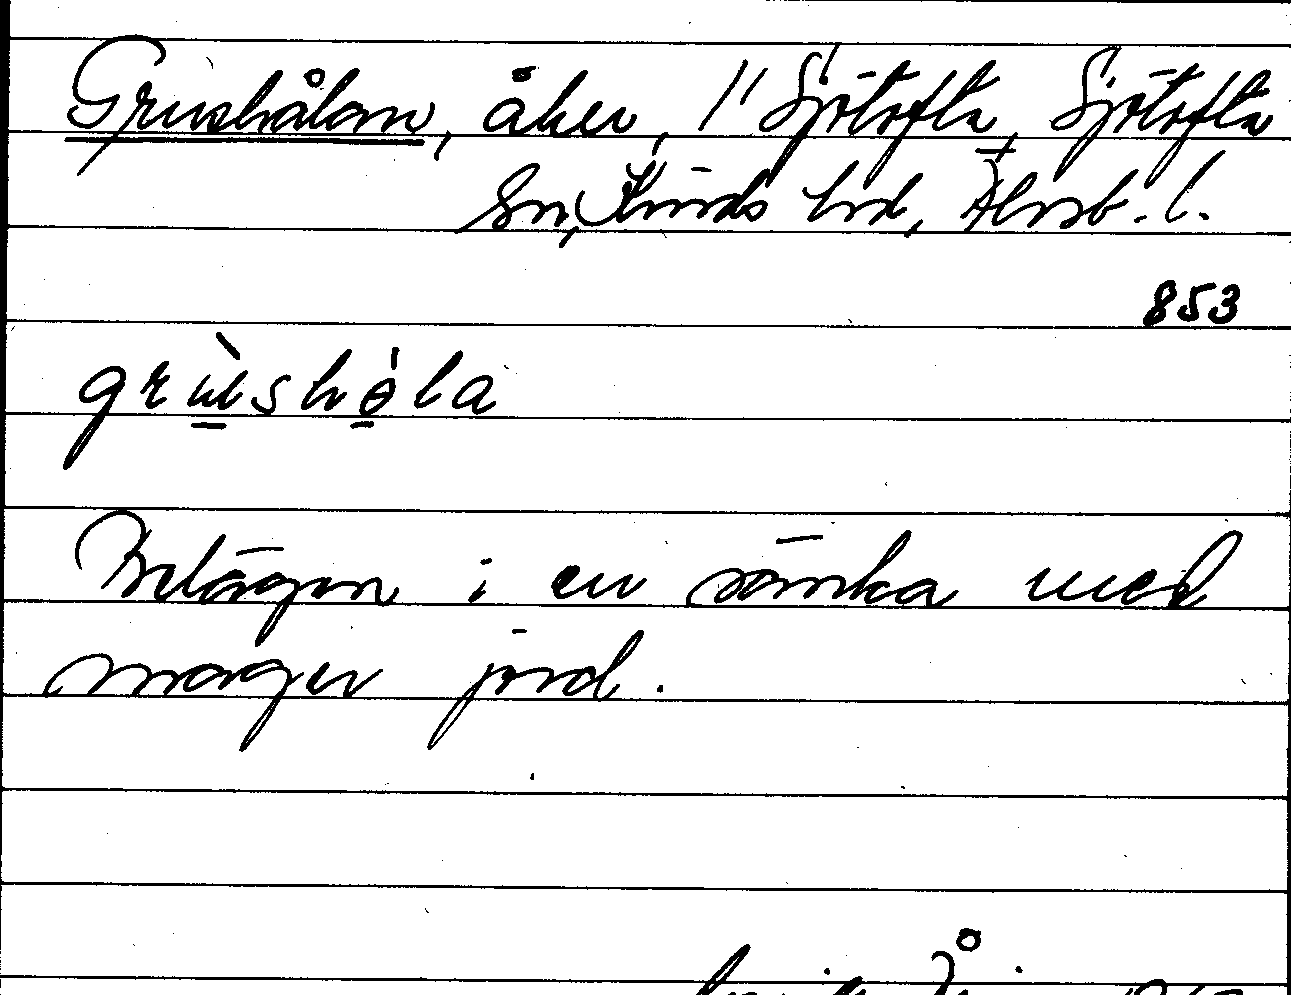 Grushålan, åker, 1" Sjötofta, Sjötofta
Sn, Kinds hd, Älvsb. l.
853
grùshòla
Belägen i en sänka med
mager jord.